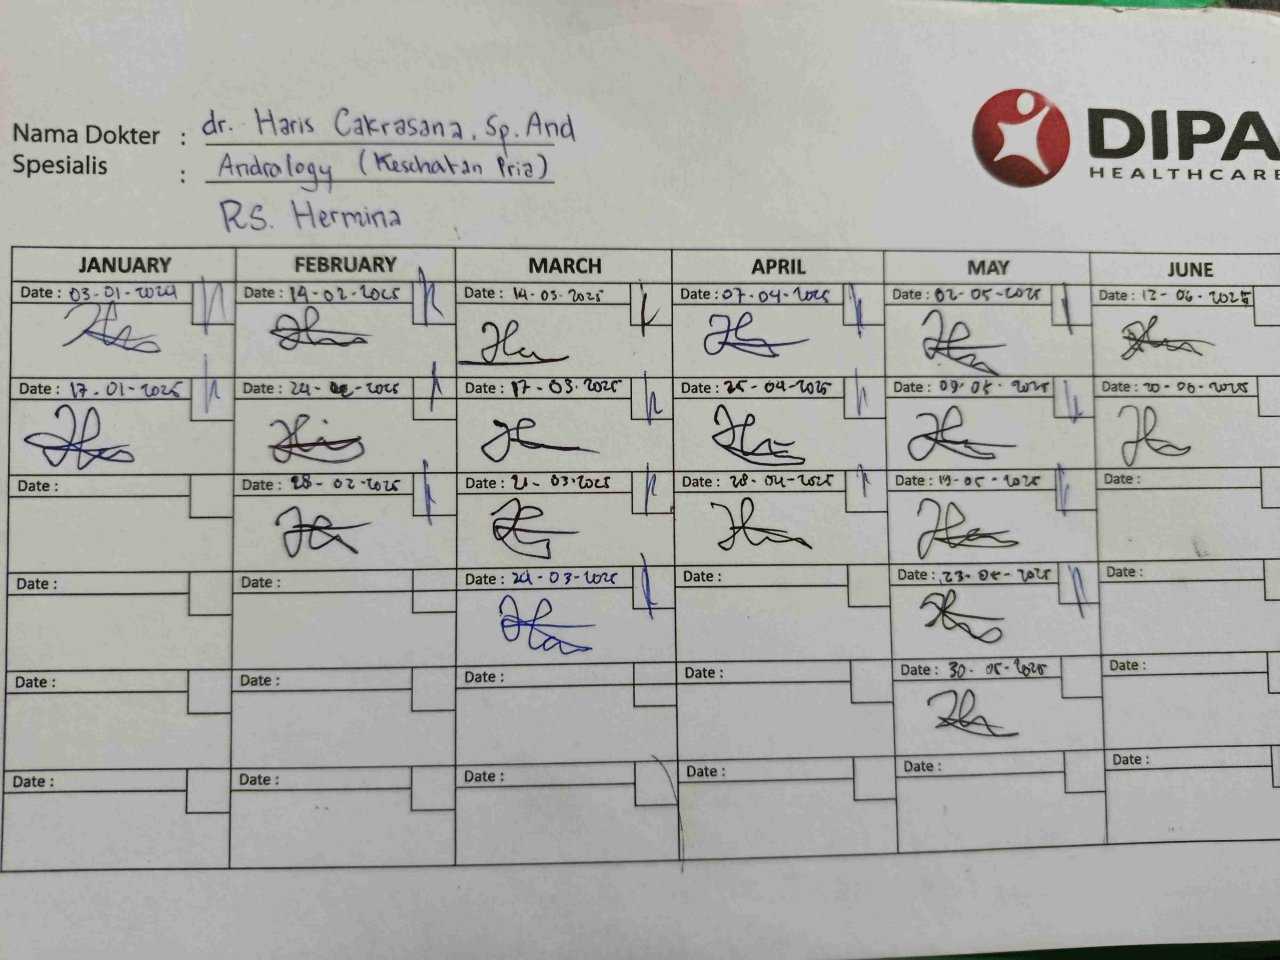 Nama Dokter : dr. Haris Cakrasana, Sp. And
Spesialis : Andrology (Kesehatan Pria)
RS. Hermina
DIPA
HEALTHCARE
JANUARY FEBRUARY MARCH APRIL MAY JUNE
Date : 03-01-2024 Date : 14-02-2025 Date : 14-03-2025 Date : 07-04-2025 Date : 02-05-2025 Date : 12-06-2025
Date : 17-01-2025 Date : 24- -2025 Date : 17-03-2025 Date : 25-04-2025 Date : 09-05-2025 Date : 20-06-2025
Date : Date : 28-02-2025 Date : 21-03-2025 Date : 28-04-2025 Date : 19-05-2025 Date :
Date : Date : Date : 24-03-2025 Date : Date : 23-05-2025 Date :
Date : Date : Date : Date : Date : 30-05-2025 Date :
Date : Date : Date : Date : Date : Date :